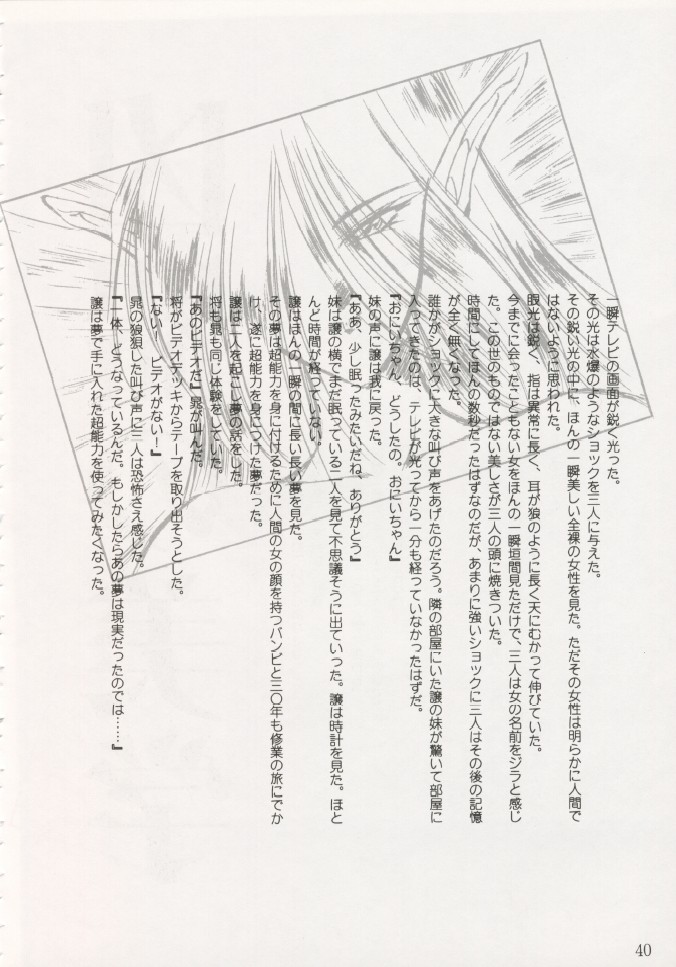 一瞬テレビの画面が鋭く光った。
その光は水爆のようなショックを三人に与えた。
その鋭い光の中に、ほんの一瞬美しい全裸の女性を見た。ただその女性は明らかに人間で
はないように思われた。
眼光は鋭く、指は異常に長く、耳が狼のように長く天にむかって伸びていた。
今までに会ったこともない女をほんの一瞬垣間見ただけで、三人は女の名前をジラと感じ
た。この世のものではない美しさが三人の頭に焼きついた。
時間にしてほんの数秒だったはずなのだが、あまりに強いショックに三人はその後の記憶
が全く無くなった。
誰かがショックに大きな叫び声をあげたのだろう。隣の部屋にいた譲の妹が驚いて部屋に
入ってきたのは、テレビが光ってから一分も経っていなかったはずだ。
『おにいちゃん、どうしたの。おにいちゃん』
妹の声に譲は我に戻った。
『ああ、少し眠ったみたいだね、ありがとう』
妹は譲の横でまだ眠っている二人を見て不思議そうに出ていった。譲は時計を見た。ほと
んど時間が経っていない。
譲はほんの一瞬の間に長い長い夢を見た。
その夢は超能力を身に付けるために人間の女の顔を持つバンビと三〇年も修業の旅にでか
け、遂に超能力を身につけた夢だった。
譲は二人を起こし夢の話をした。
将も晃も同じ体験をしていた。
『あのビデオだ』晃が叫んだ。
将がビデオデッキからテープを取り出そうとした。
『ない！　ビデオがない！』
晃の狼狽した叫び声に三人は恐怖さえ感じた。
『一体、どうなっているんだ。もしかしたらあの夢は現実だったのでは……』
譲は夢で手に入れた超能力を使ってみたくなった。
40